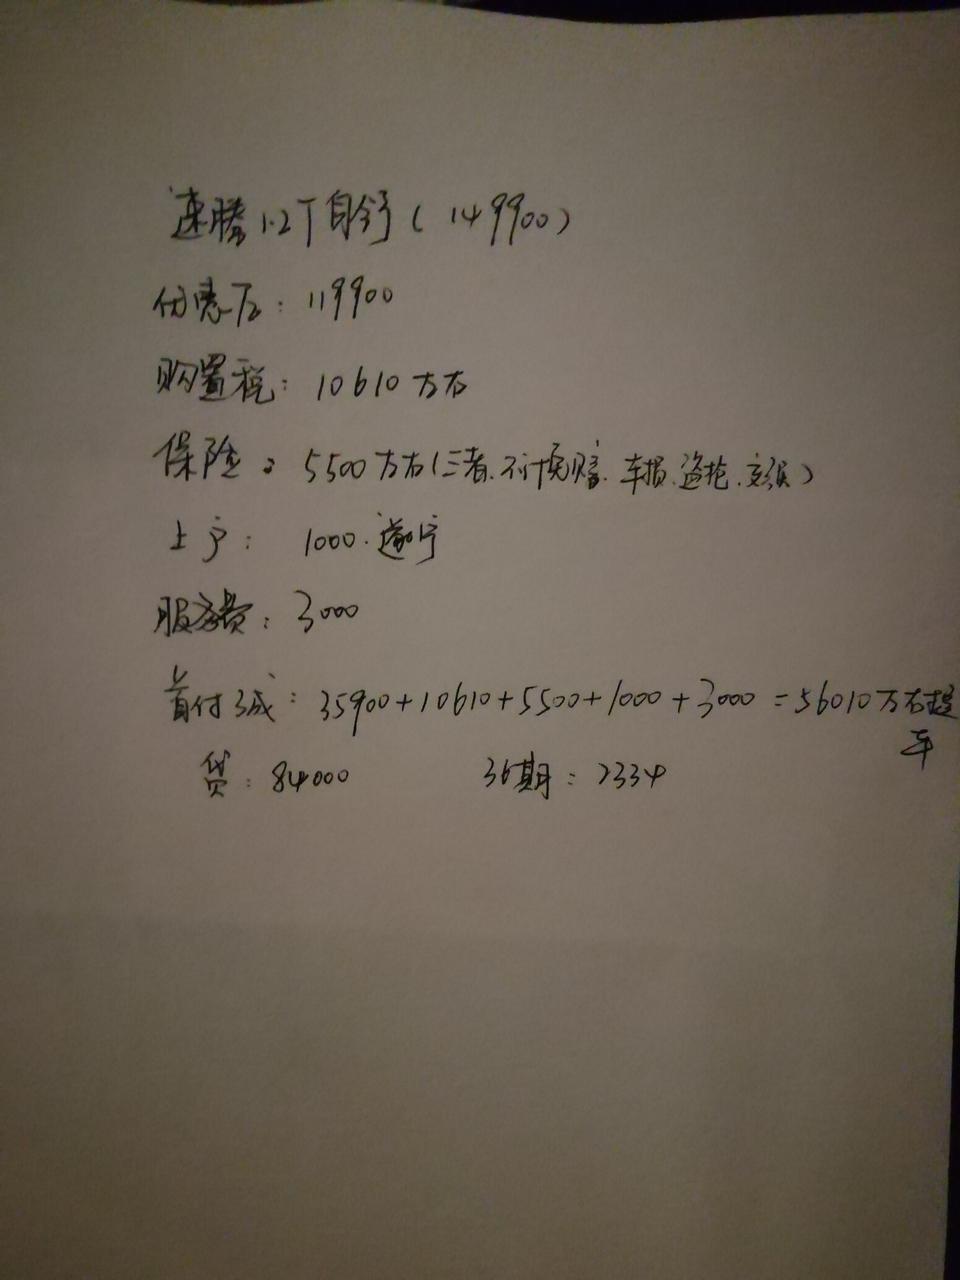 速腾1.2T自舒(149900)
优惠后:119900
购置税:10610左右
保险:5500左右(三者、不计免赔、车损、盗抢、交强)
上户:1000.遂宁
服务费:3000
首付3成:35900+10610+5500+1000+3000=56010左右提
车
贷:84000 36期:2334